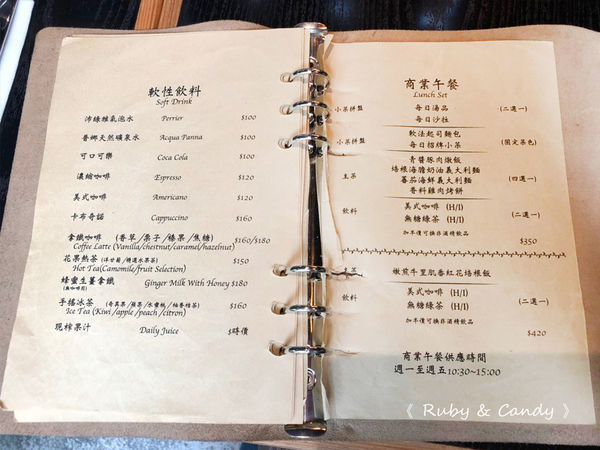 軟性飲料
Soft Drink
沛綠雅氣泡水 Perrier $100
普娜天然礦泉水 Acqua Panna $100
可口可樂 Coca Cola $100
濃縮咖啡 Espresso $120
美式咖啡 Americano $120
卡布奇諾 Cappuccino $160
拿鐵咖啡 (香草/栗子/榛果/焦糖) $160/$180
Coffee Latte (Vanilla/chestnut/caramel/hazelnut)
花果熱茶 (洋甘菊/精選水果茶) $150
Hot Tea(Camomile/fruit Selection)
蜂蜜生薑拿鐵 Ginger Milk With Honey $180
(無咖啡因)
手搖冰茶 (奇異果/蘋果/水蜜桃/柚香桔茶) $160
Ice Tea (Kiwi/apple/peach/citron)
現榨果汁 Daily Juice $時價
商業午餐
Lunch Set
小菜拼盤 每日湯品 (二選一)
每日沙拉
小菜拼盤 軟法起司麵包 (固定菜色)
每日招牌小菜
青醬豚肉燉飯
主菜 培根海膽奶油義大利麵 (四選一)
蕃茄海鮮義大利麵
香料雞肉烤餅
飲料 美式咖啡 (H/I) (二選一)
無糖綠茶 (H/I)
加半價可換非酒精飲品
$350
主菜 嫩煎牛里肌番紅花培根飯
飲料 美式咖啡 (H/I) (二選一)
無糖綠茶 (H/I)
加半價可換非酒精飲品
$420
商業午餐供應時間
週一至週五10:30~15:00
《 Ruby & Candy 》